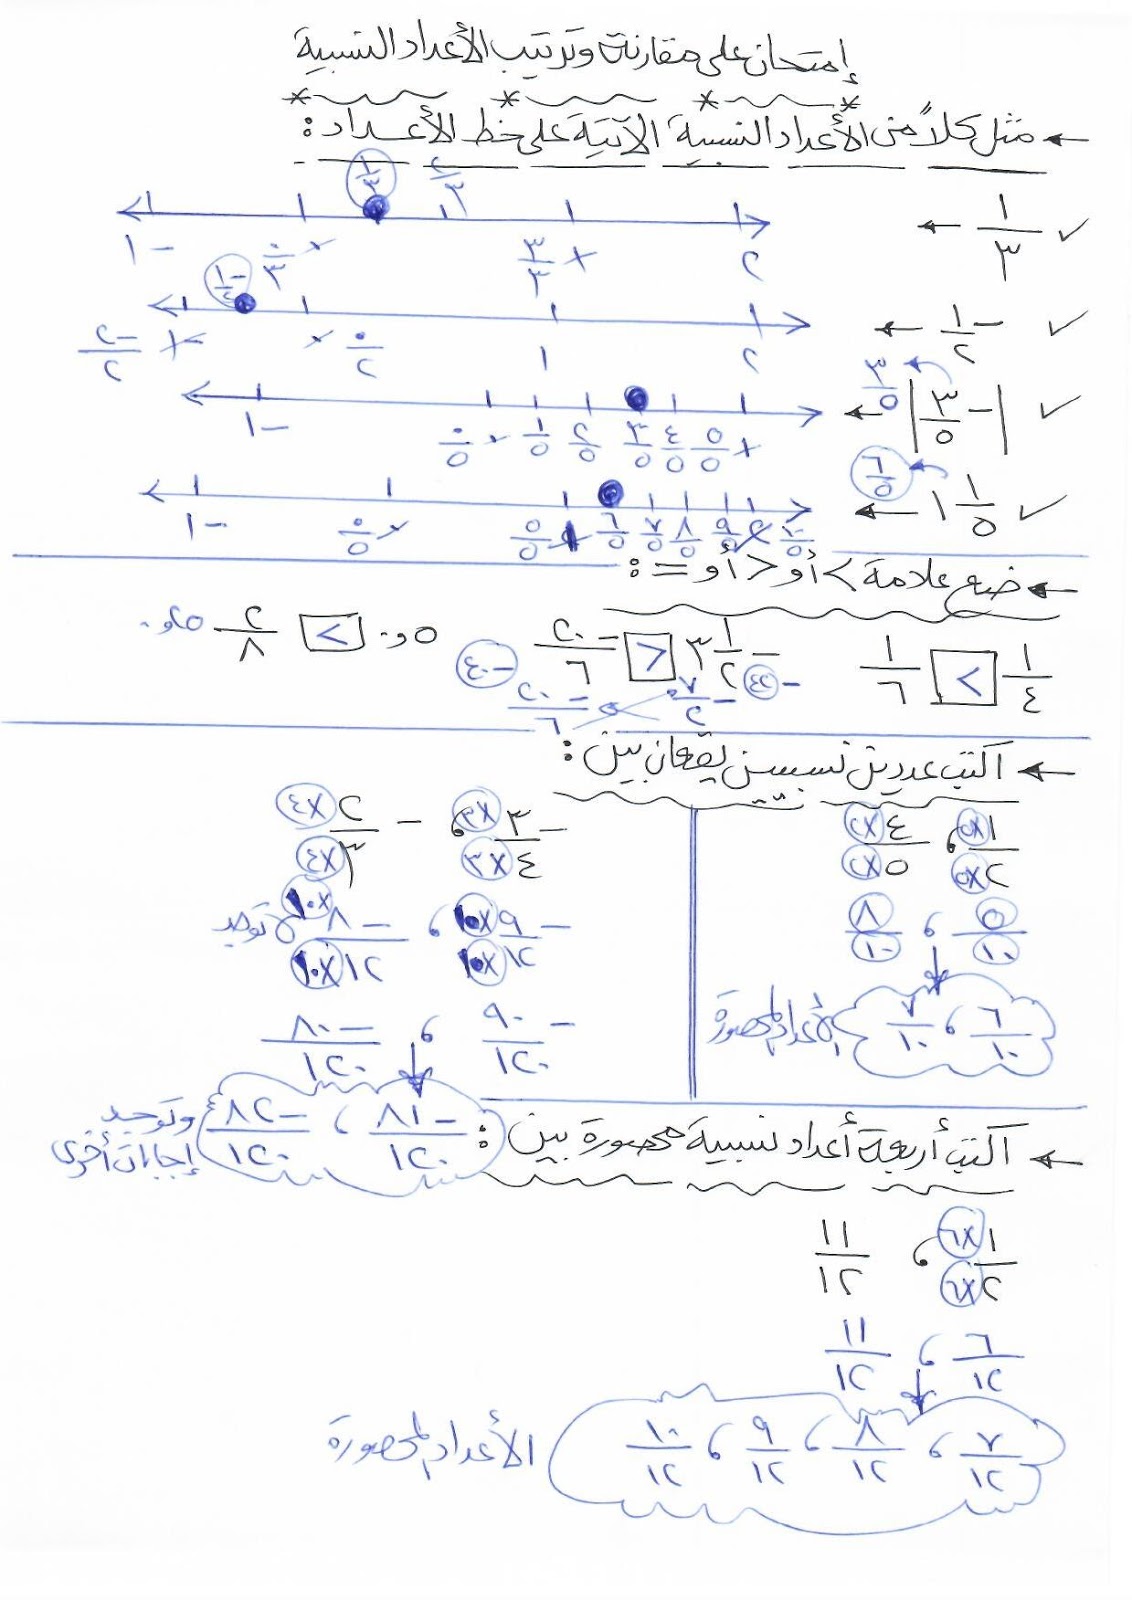 إمتحان على مقارنة وترتيب الأعداد النسبية
← مثل كلاً من الأعداد النسبية الآتية على خط الأعداد :
١/٣ ← ✓
١- ٠/٣ ١/٣ ٢/٣ ٣/٣ ٢
-١/٢ ← ✓
-٢/٢ ٠/٢ ١ ٢
|-٣/٥| ← ٣/٥ ✓
١- ٠/٥ ١/٥ ٢/٥ ٣/٥ ٤/٥ ٥/٥
١ ١/٥ ← ٦/٥ ✓
١- ٠/٥ ٥/٥ ٦/٥ ٧/٥ ٨/٥ ٩/٥ ١٠/٥
← ضع علامة > أو < أو = :
١/٤ > ١/٦
-٣ ١/٢ < -٢٠/٦
٠و٥ > ٢/٨ ٠و٢٥
-٧/٢ -٢٠/٦
-٤٢ -٤٠
← اكتب عددين نسبيين يقعان بين :
١/٢ ، ٤/٥
×٥ ×٥ ×٢ ×٢
٥/١٠ ، ٨/١٠
٦/١٠ ، ٧/١٠ الأعداد المحصورة
-٣/٤ ، -٢/٣
×٣ ×٣ ×٤ ×٤
-٩/١٢ ، -٨/١٢ لا توجد
×١٠ ×١٠ ×١٠ ×١٠
-٩٠/١٢٠ ، -٨٠/١٢٠
-٨١/١٢٠ ، -٨٢/١٢٠ وتوجد
إجابات أخرى
← اكتب أربعة أعداد نسبية محصورة بين :
١/٢ ، ١١/١٢
×٦ ×٦
٦/١٢ ، ١١/١٢
٧/١٢ ، ٨/١٢ ، ٩/١٢ ، ١٠/١٢ الأعداد المحصورة